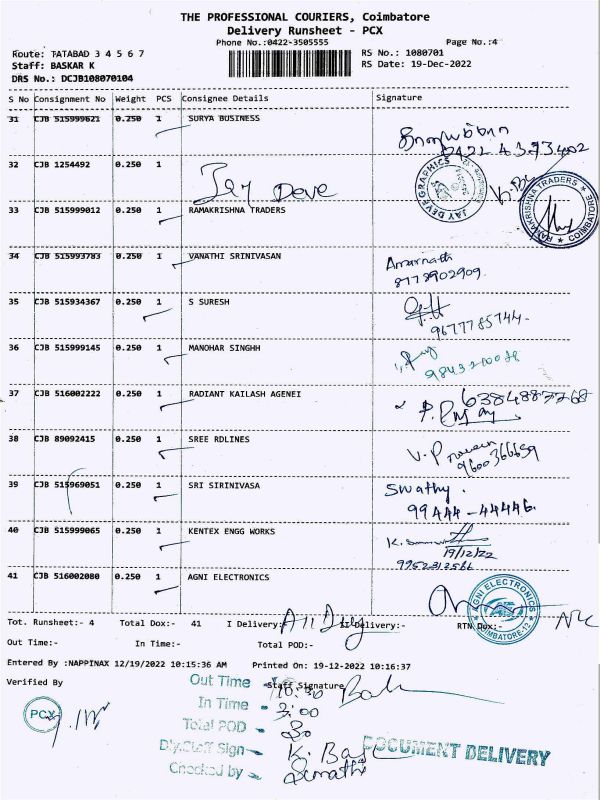 THE PROFESSIONAL COURIERS, Coimbatore
Delivery Runsheet - PCX
Phone No.:0422-3505555 Page No.:4
Route: TATABAD 3 4 5 6 7 RS No.: 1080701
Staff: BASKAR K RS Date: 19-Dec-2022
DRS No.: DCJB108070104
S No Consignment No Weight PCS Consignee Details Signature
31 CJB 515999621 0.250 1 SURYA BUSINESS
0422 4373402
32 CJB 1254492 0.250 1 Jay Deve
JAY DEVE GRAPHICS
33 CJB 515999012 0.250 1 RAMAKRISHNA TRADERS
RAMAKRISHNA TRADERS COIMBATORE
34 CJB 515993783 0.250 1 VANATHI SRINIVASAN Amarnath
8778902909.
35 CJB 515934367 0.250 1 S SURESH
9677785744.
36 CJB 515999145 0.250 1 MANOHAR SINGHH
37 CJB 516002222 0.250 1 RADIANT KAILASH AGENEI 6384887768
38 CJB 89092415 0.250 1 SREE RDLINES V. Praveen
9600366659
39 CJB 515969051 0.250 1 SRI SIRINIVASA Swathy.
99444-44446.
40 CJB 515999065 0.250 1 KENTEX ENGG WORKS
19/12/22
41 CJB 516002080 0.250 1 AGNI ELECTRONICS
AGNI ELECTRONICS COIMBATORE-12
Tot. Runsheet:- 4 Total Dox:- 41 I Delivery:- II Delivery:- RTN Dox:-
Out Time:- In Time:- Total POD:-
Entered By :NAPPINAX 12/19/2022 10:15:36 AM Printed On: 19-12-2022 10:16:37
Verified By Staff Signature
PCX
Out Time - 10:30
In Time - 3:00
Total POD -
Dly.Staff Sign -
Checked by -
DOCUMENT DELIVERY